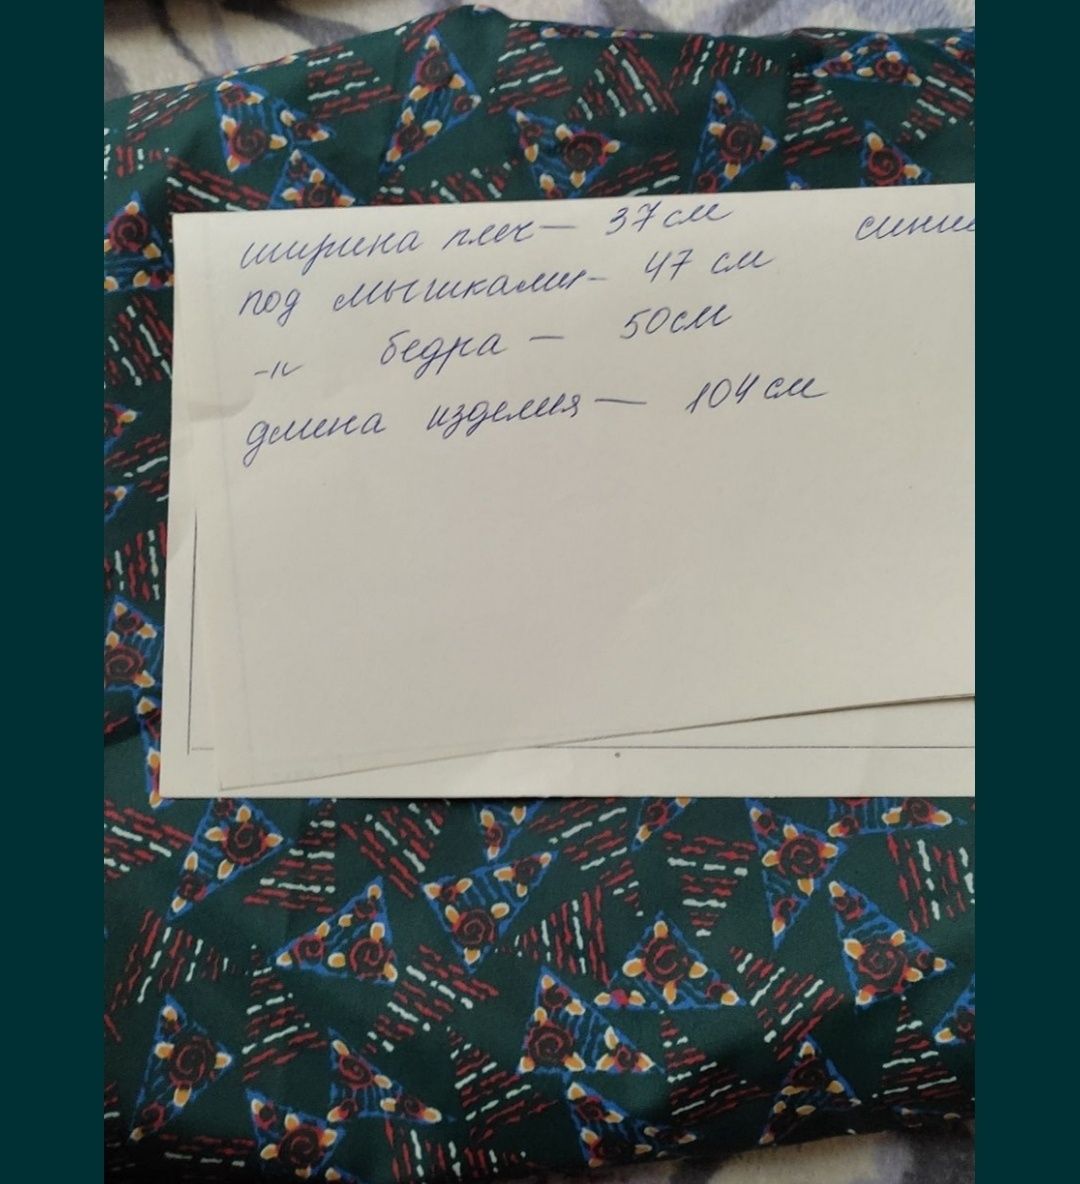 ширина плеч — 37 см
сини
под мышками - 47 см
-"- бедра — 50 см
длина изделия — 104 см